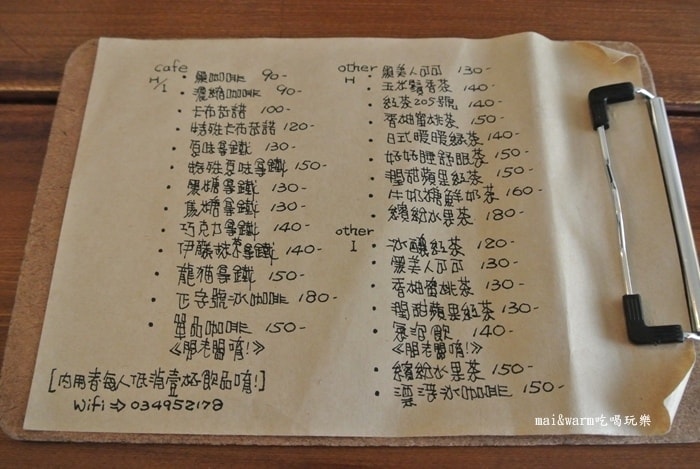 cafe
H/I
黑咖啡 90-
濃縮咖啡 90-
卡布奇諾 100-
特殊卡布奇諾 120-
原味拿鐵 130-
特殊原味拿鐵 150-
黑糖拿鐵 130-
焦糖拿鐵 130-
巧克力拿鐵 140-
伊藤抹茶拿鐵 140-
龍貓拿鐵 150-
正字號冰咖啡 180-
單品咖啡 150-
《問老闆唷!》
[內用者每人低消壹杯飲品唷!]
Wifi ⇒ 034952178
other
H
黑美人可可 130-
玉米鬚香茶 140-
紅茶205號 140-
香柚蜜桃茶 150-
日式暖暖綠茶 140-
好好睡舒眠茶 150-
潤甜蘋果紅茶 150-
牛奶糖鮮奶茶 160-
繽紛水果茶 180-
other
I
冰釀紅茶 120-
黑美人可可 130-
香柚蜜桃茶 130-
潤甜蘋果紅茶 130-
氣泡飲 140-
《問老闆唷!》
繽紛水果茶 150-
漂浮冰咖啡 150-
mai&warm吃喝玩樂